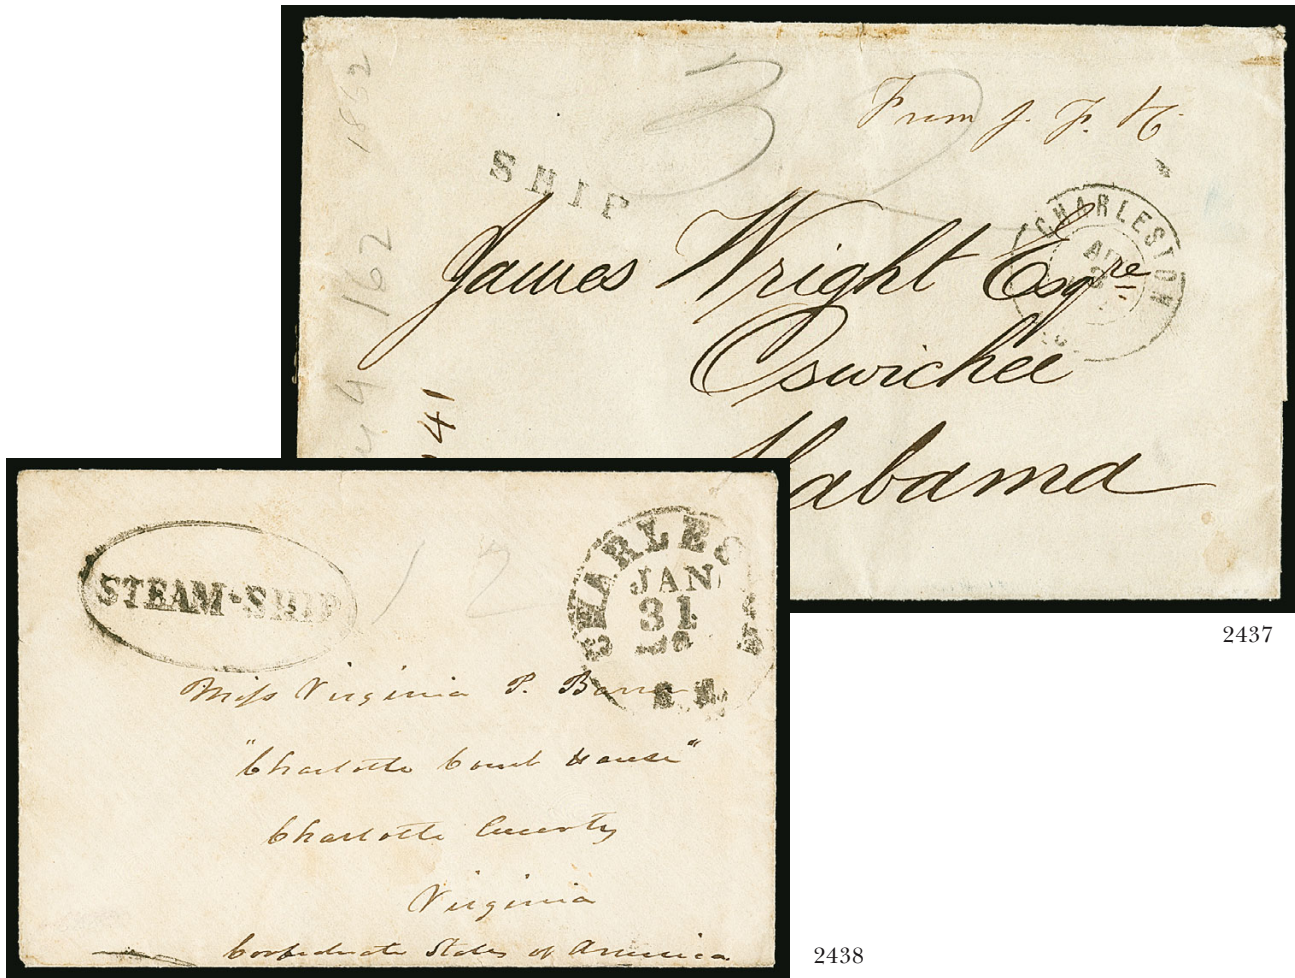 1862
32
From J. F. H.
SHIP
CHARLESTON
James Wright Esqre
Oswichee
Alabama
162
41
STEAM-SHIP
12
CHARLES
JAN
31
Miss Virginia P.
"Charlotte Court House"
Charlotte County
Virginia
Confederate States of America
2437
2438